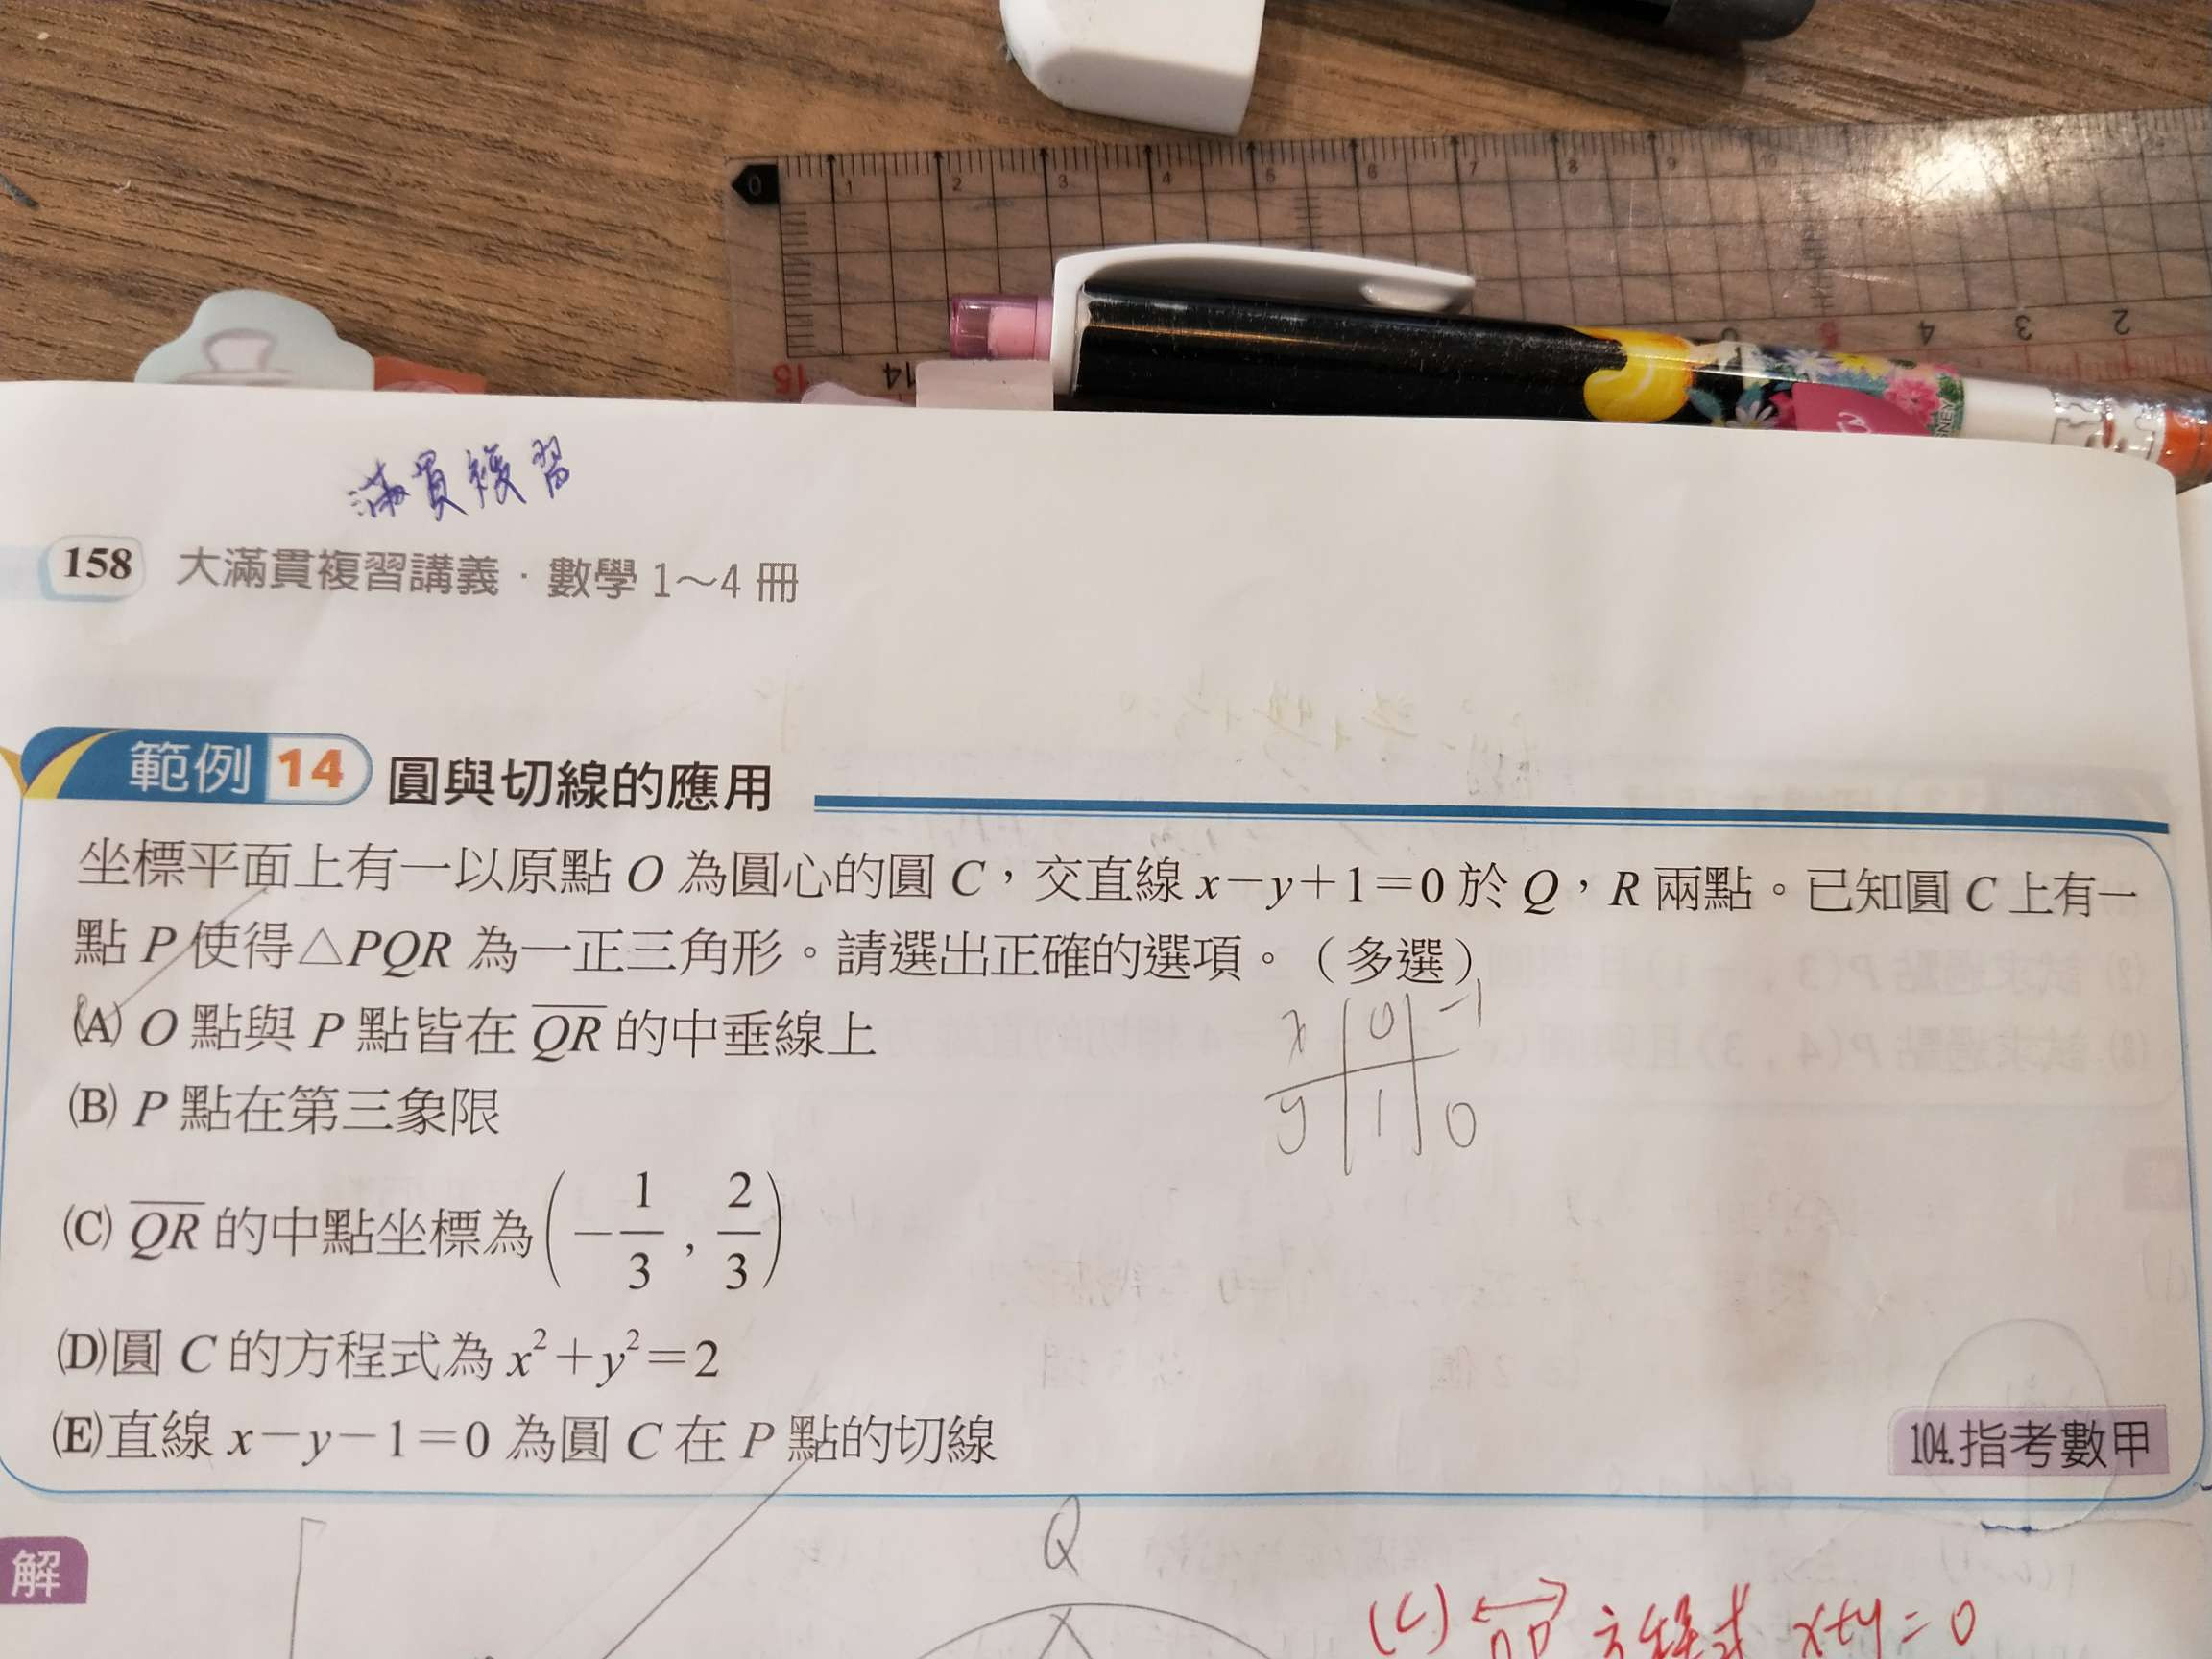 0 1 2 3 4 5 6 7 8 9 10
15 14 5 4 3 2
滿貫複習
158 大滿貫複習講義·數學1~4冊
範例 14 圓與切線的應用
坐標平面上有一以原點 O 為圓心的圓 C，交直線 x−y+1=0 於 Q，R 兩點。已知圓 C 上有一
點 P 使得△PQR 為一正三角形。請選出正確的選項。（多選）
(A) O 點與 P 點皆在 \overline{QR} 的中垂線上
x 0 -1
y 1 0
(B) P 點在第三象限
(C) \overline{QR} 的中點坐標為(−1/3 , 2/3)
(D)圓 C 的方程式為 x²+y²=2
(E)直線 x−y−1=0 為圓 C 在 P 點的切線
104.指考數甲
解
Q
(C) 方程式 x+y=0